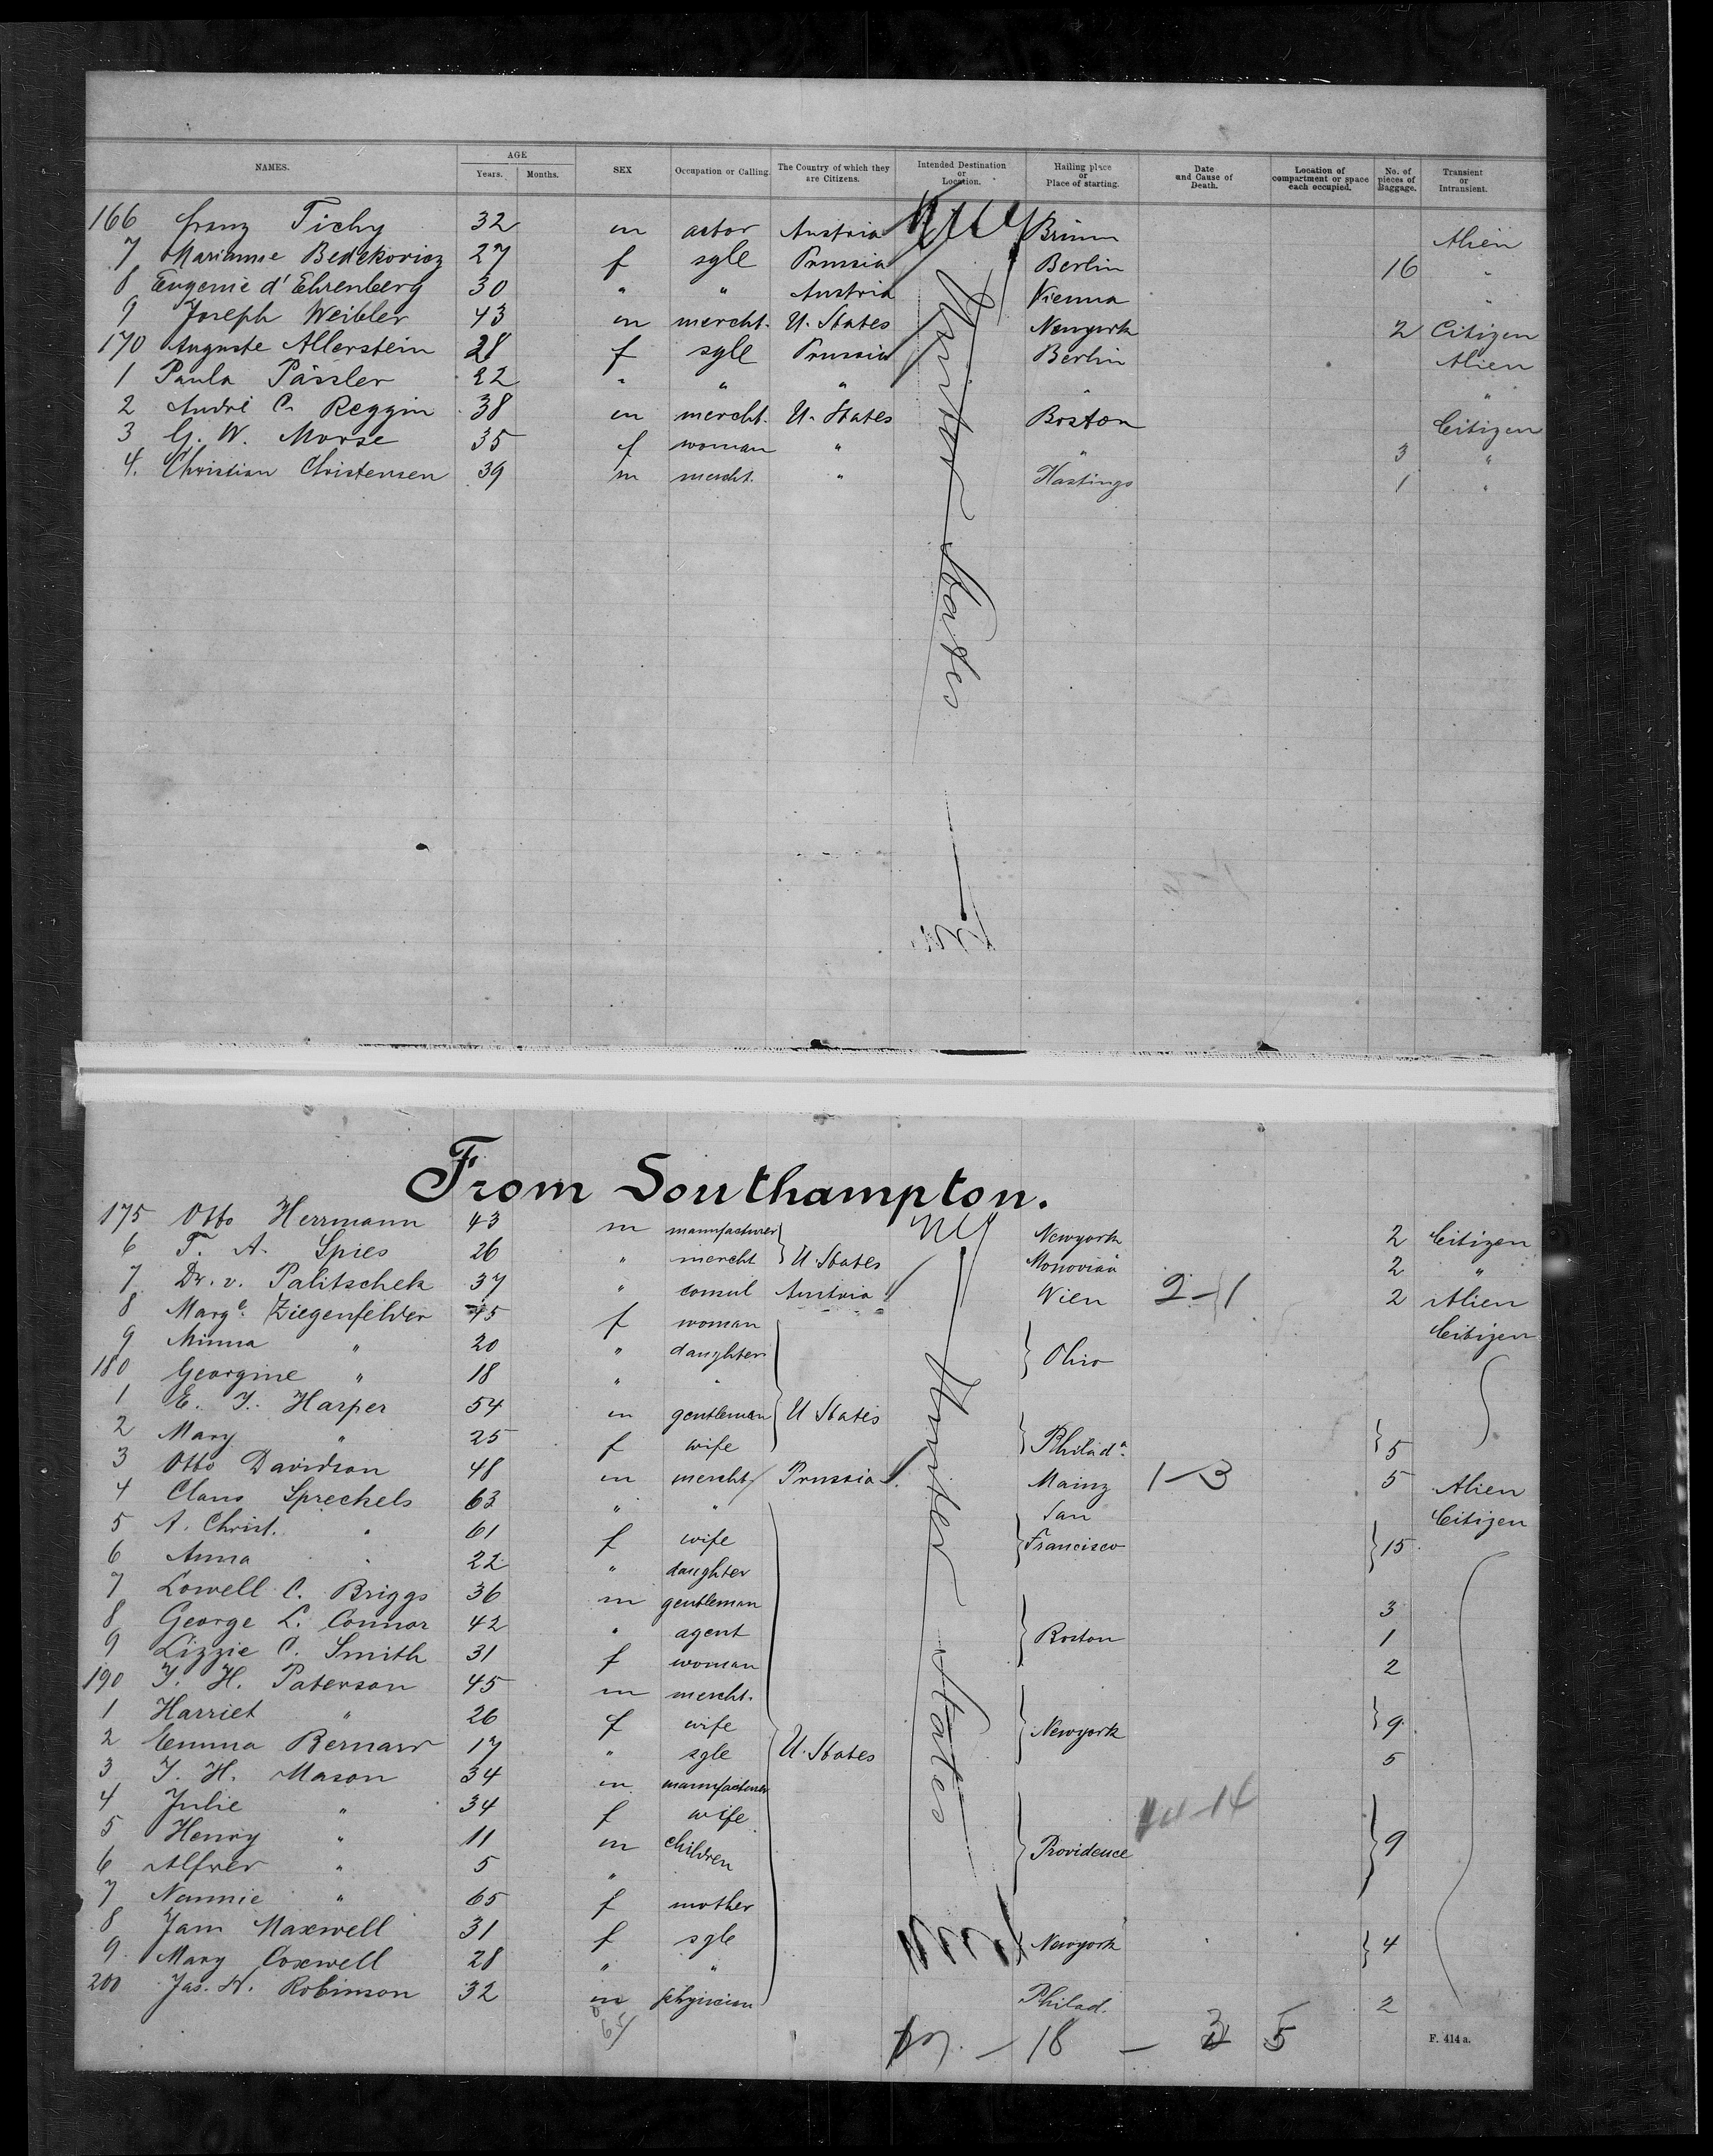 NAMES. AGE Years. Months. SEX Occupation or Calling. The Country of which they are Citizens. Intended Destination or Location. Hailing place or Place of starting. Date and Cause of Death. Location of compartment or space each occupied. No. of pieces of Baggage. Transient or Intransient.
166 Franz Tichy 32 m actor Austria Brünn Alien
7 Marianne Bedekovicz 27 f sgle Prussia Berlin 16 "
8 Eugenie d'Ehrenberg 30 " " Austria Vienna "
9 Joseph Weibler 43 m mercht. U. States Newyork 2 Citizen
170 Auguste Allerstein 28 f sgle Prussia Berlin Alien
1 Paula Pässler 22 " " " " "
2 André C. Reggin 38 m mercht. U. States Boston Citizen
3 G. W. Morse 35 f woman " " 3 "
4. Christian Christensen 39 m mercht. " Hastings 1 "
United States
From Southampton.
175 Otto Herrmann 43 m manufacturer Newyork 2 Citizen
6 T. A. Spies 26 " mercht } U States Monovia 2 "
7 Dr. v. Palitschek 37 " consul Austria Wien 2-1 2 Alien
8 Marge. Ziegenfelder 45 f woman Citizen
9 Minna " 20 " daughter } Ohio
180 Georgine " 18 " "
1 E. J. Harper 54 m gentleman U States
2 Mary " 25 f wife } Philada. } 5
3 Otto Davidson 48 m mercht Prussia Mainz 1-3 5 Alien
4 Claus Spreckels 63 " " San Citizen
5 A. Christ. " 61 f wife } Francisco } 15
6 Anna " 22 " daughter
7 Lowell C. Briggs 36 m gentleman 3
8 George L. Connor 42 " agent } Boston 1
9 Lizzie C. Smith 31 f woman 2
190 J. H. Paterson 45 m mercht.
1 Harriet " 26 f wife } Newyork } 9
2 Emma Bernard 17 " sgle U. States 5
3 J. H. Mason 34 m manufacturer
4 Julie " 34 f wife
5 Henry " 11 m children } Providence } 9
6 Alfred " 5 "
7 Nannie " 65 f mother
8 Jam Maxwell 31 f sgle } Newyork } 4
9 Mary Coxwell 28 " "
200 Jas. W. Robinson 32 m physician Philad. 2
United States
18 - 5
F. 414 a.